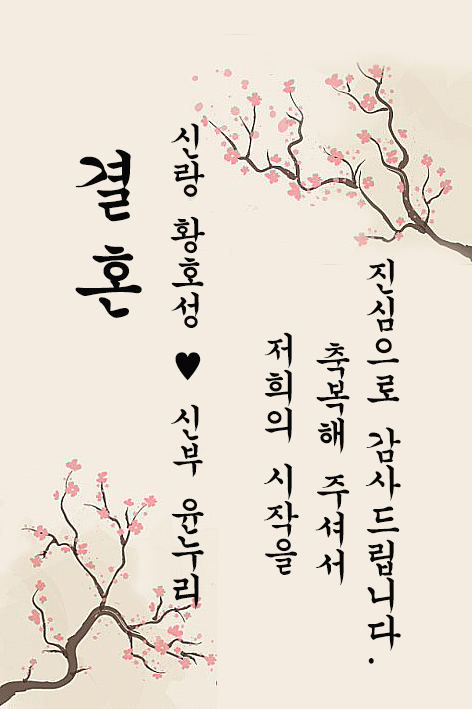 결혼
신랑 황호성 ♥ 신부 윤누리
저희의 시작을
축복해 주셔서
진심으로 감사드립니다.